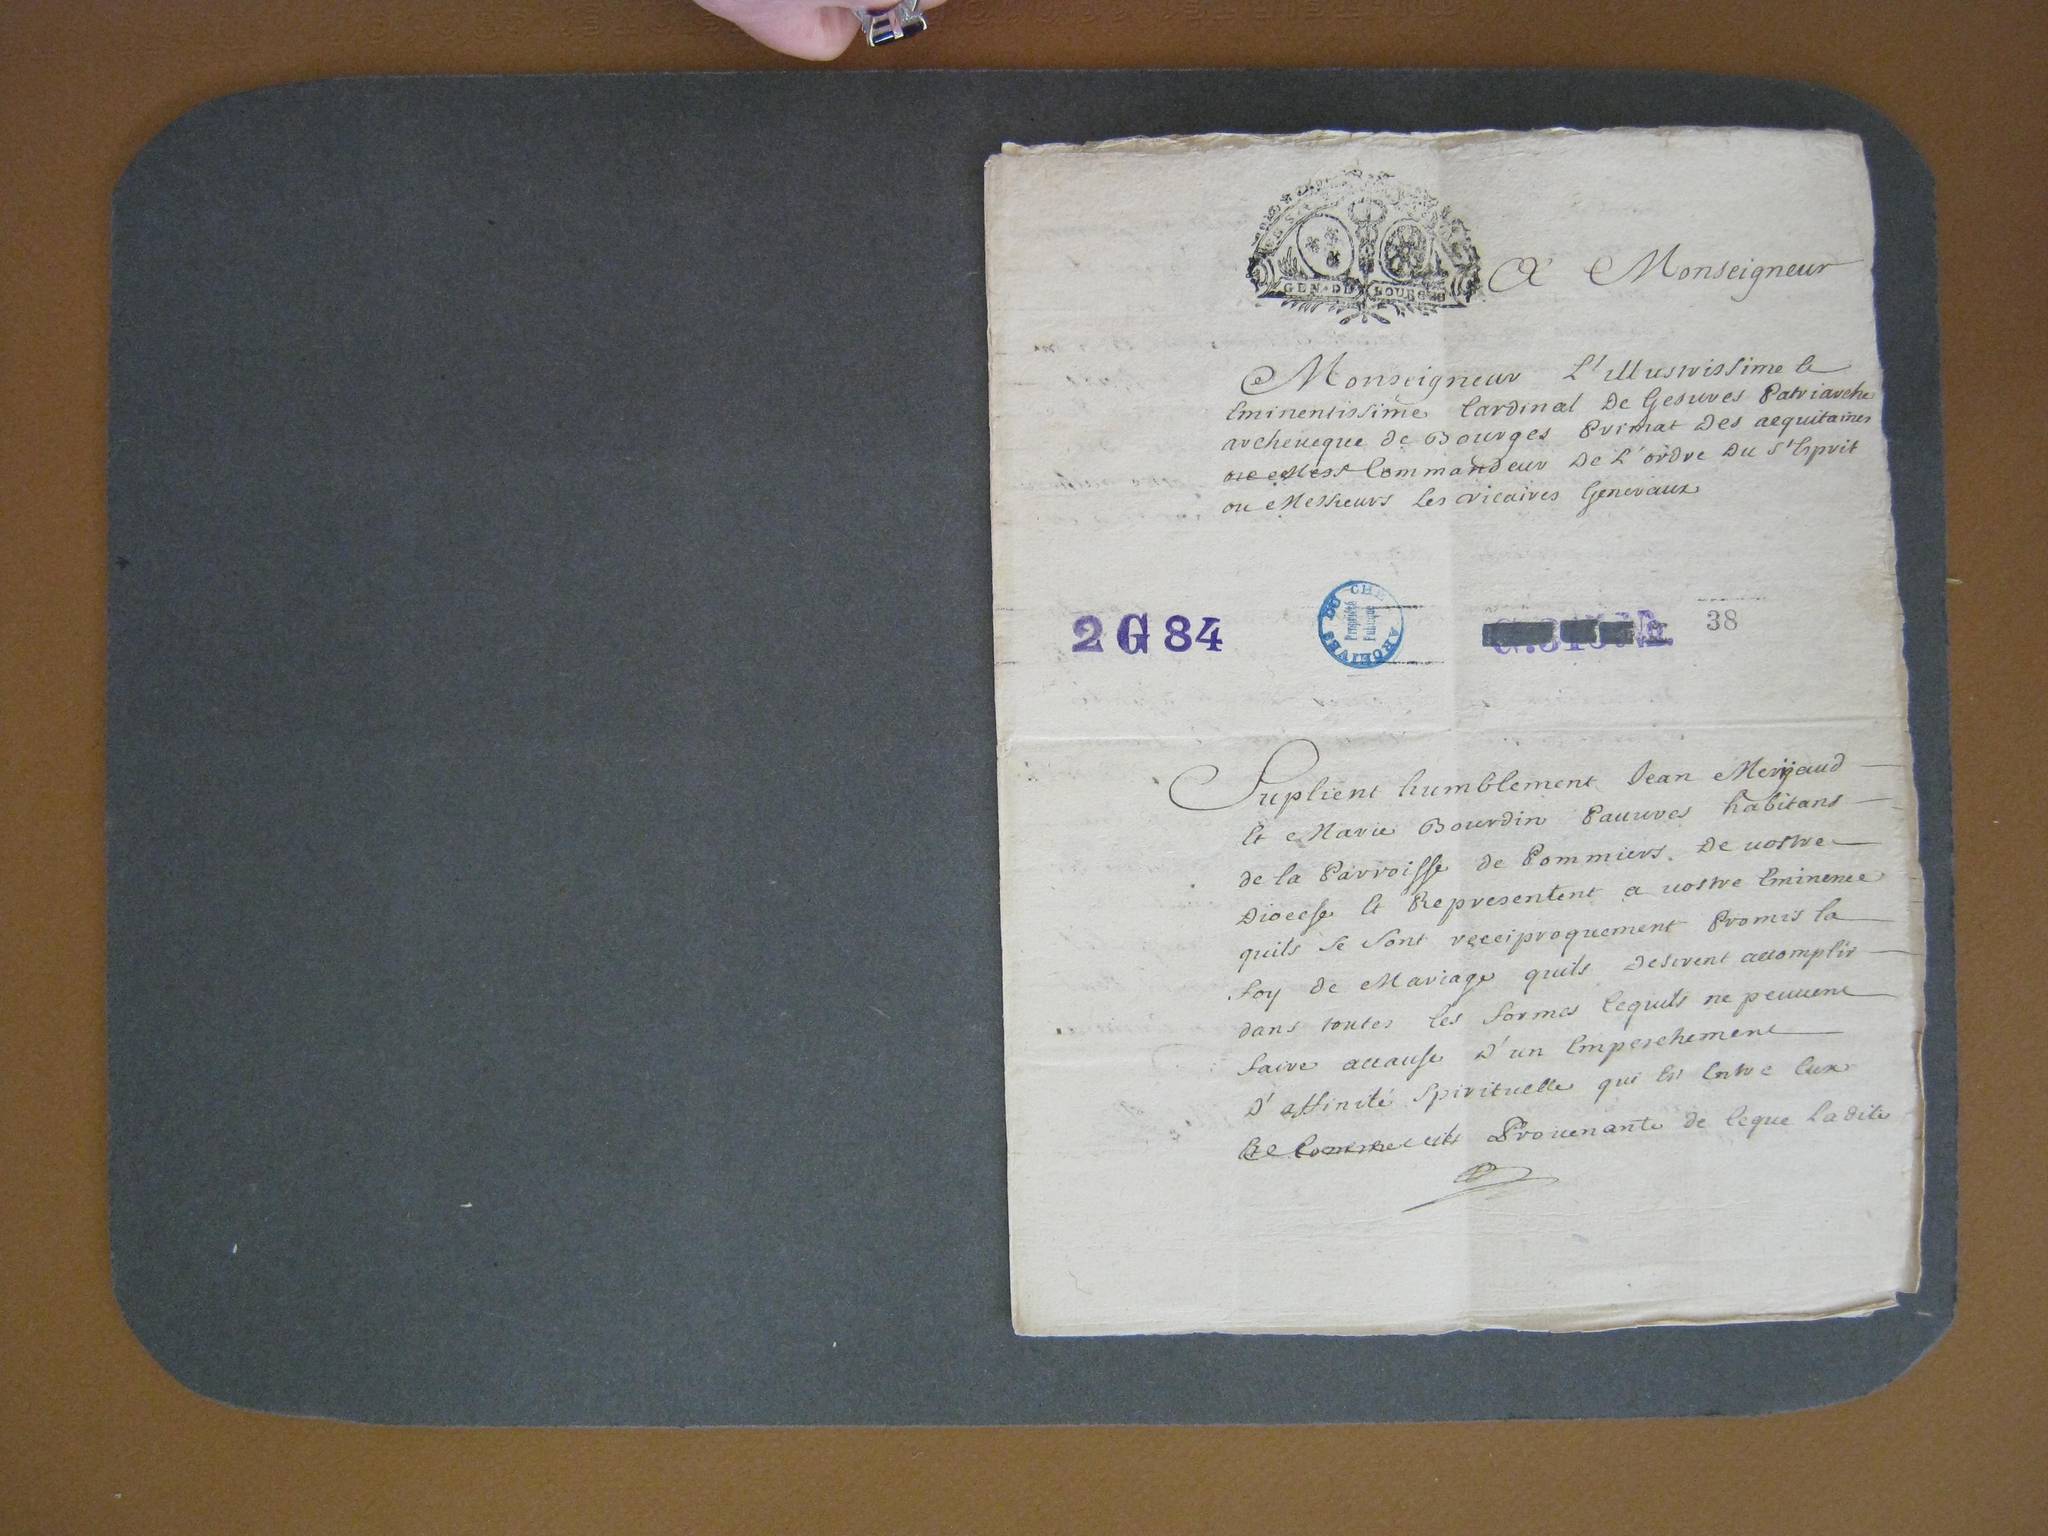 GEN · DE BOURGES
A Monseigneur
Monseigneur L'illustrissime Et
Eminentissime Cardinal De Gesvres Patriarche
archeveque de Bourges Primat Des aequitaines
ou Mess Commandeur De L'ordre Du St Esprit
ou Messieurs Les vicaires Generaux
2 G 84
ARCHIVES DU CHER
Propriété
Publique
38
Suplient humblement Jean Merjaud
Et Marie Bourdin Pauvres habitans
de la Parroisse de Pommiers De vostre
Diocese Et Representent a vostre Eminence
quils se sont reciproquement Promis la
foy de Mariage quils Desirent accomplir
dans toutes les formes Cequils ne peuvent
faire accause D'un Empeschement
D'affinité Spirituelle qui Est Entre Eux
Et Comme ils Provenante de Ceque Ladite